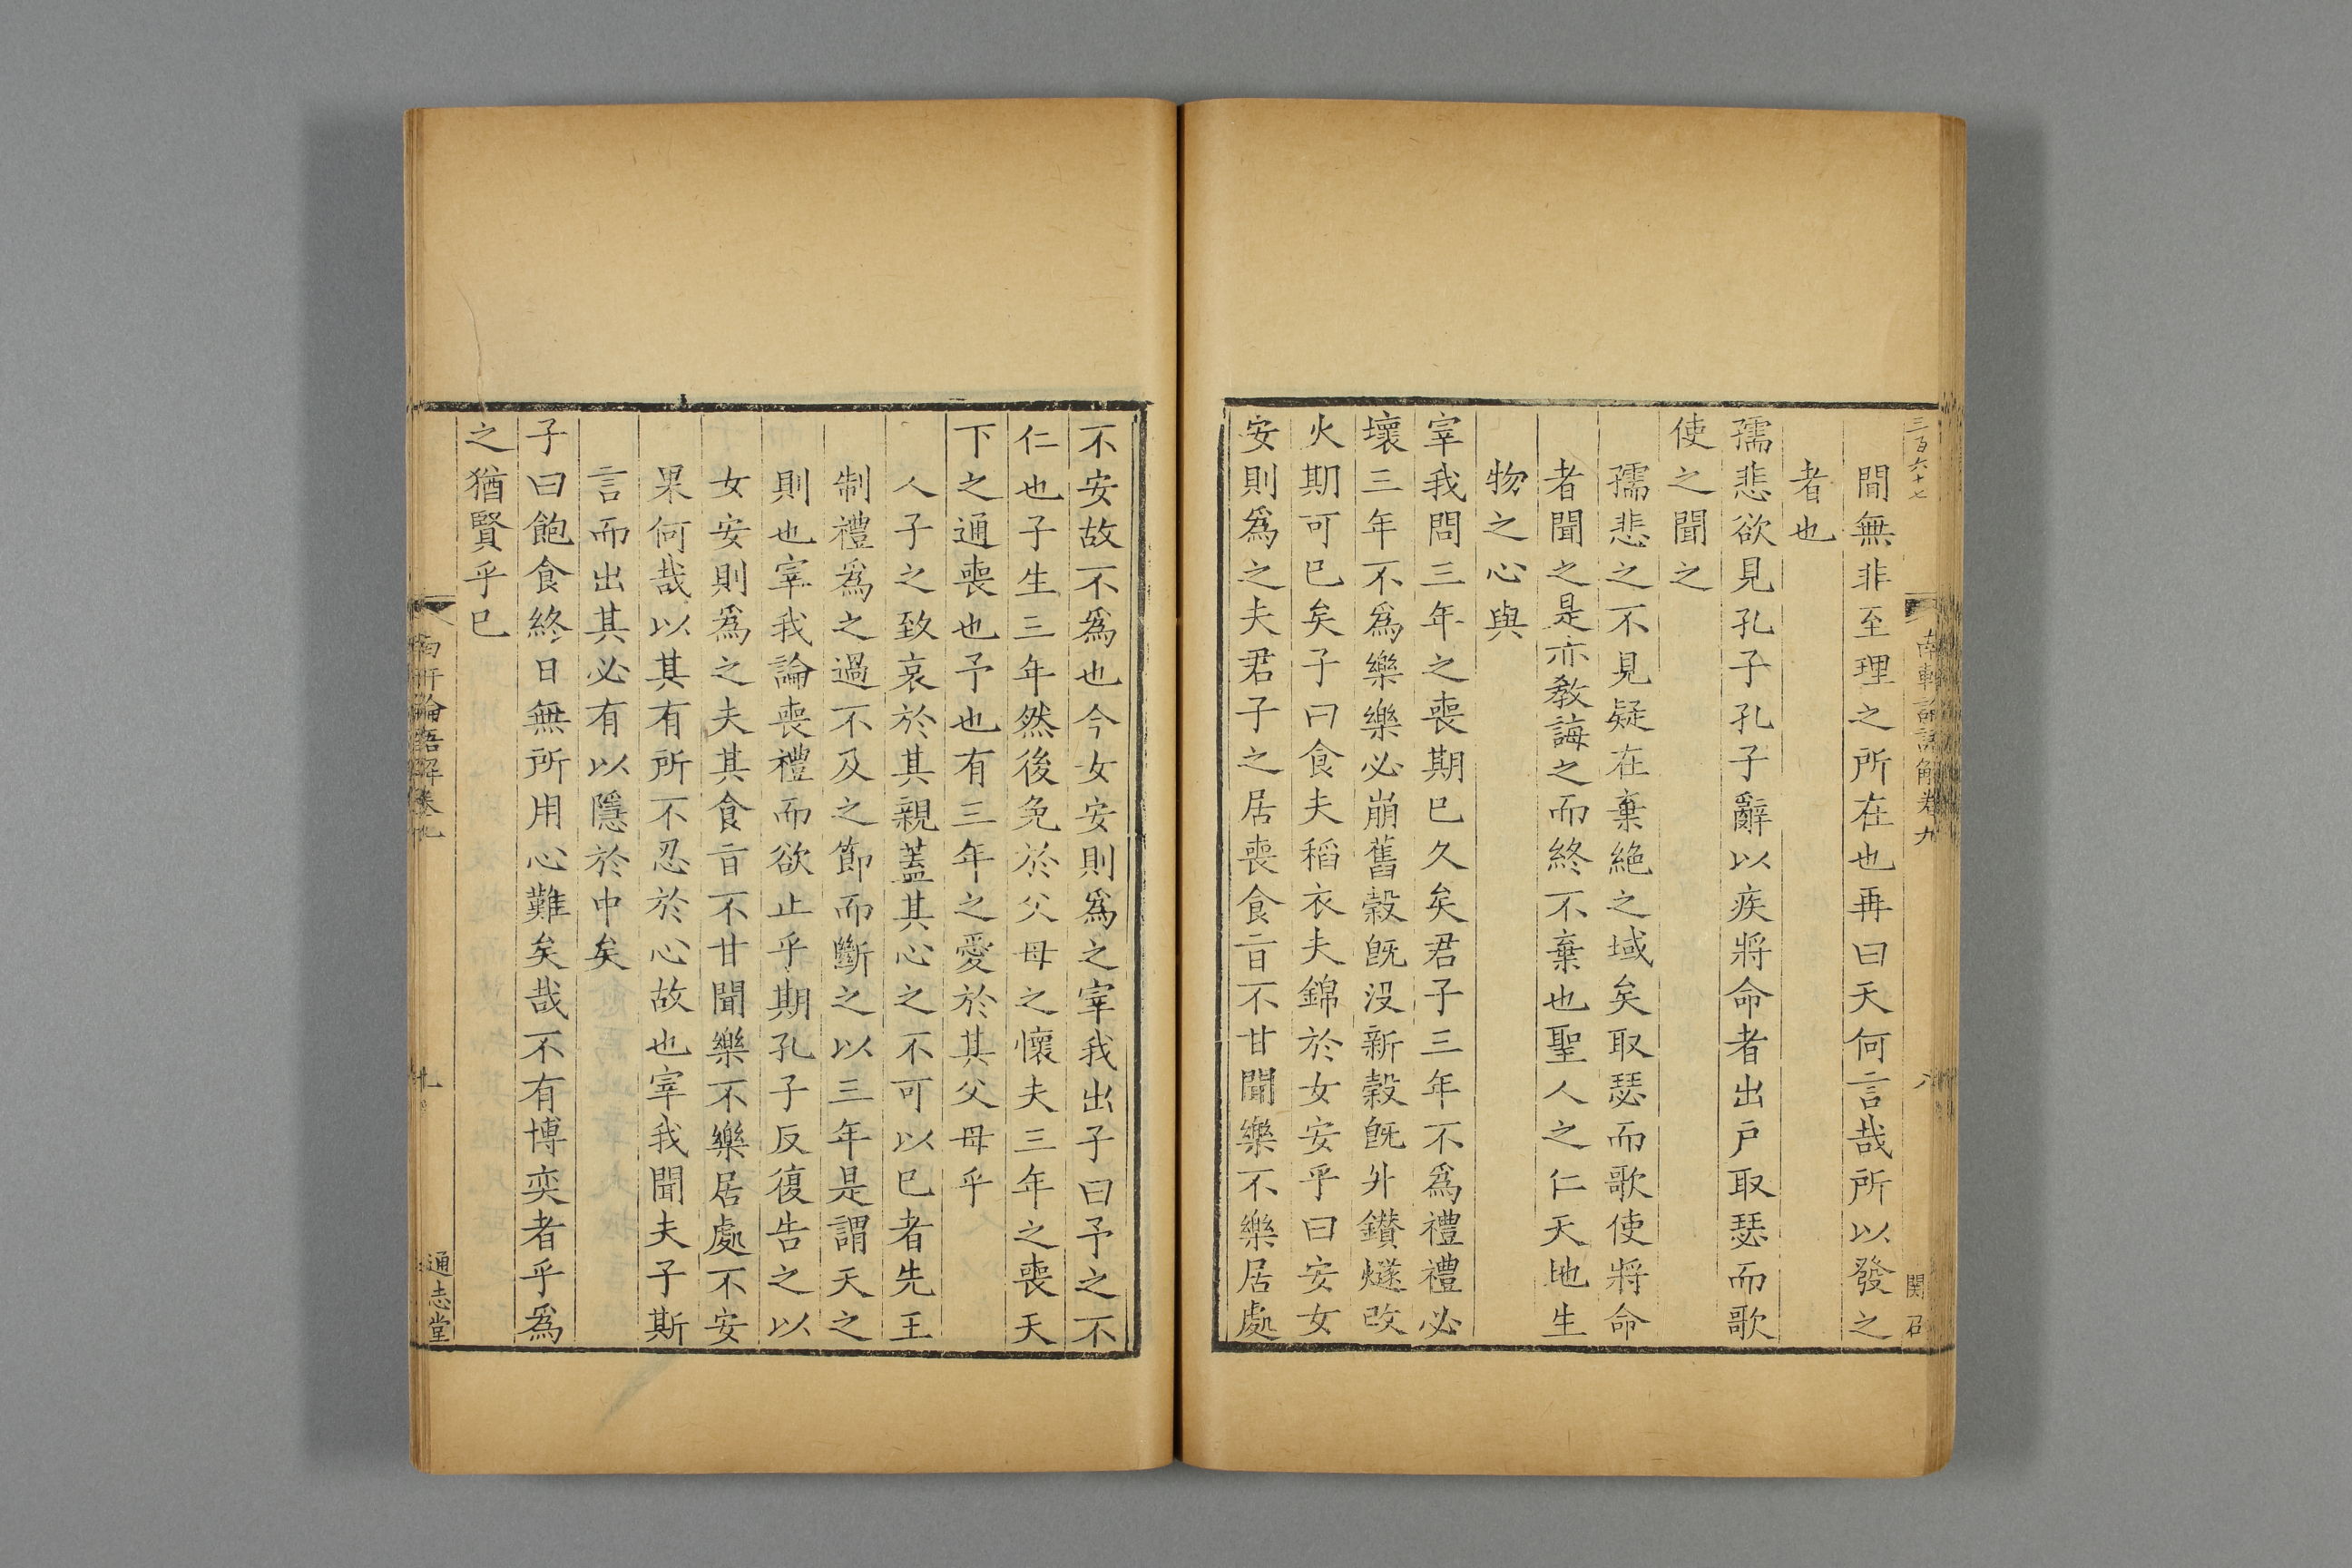 三百六十七
南軒論語解卷九
八
関召
間無非至理之所在也再曰天何言哉所以發之
者也
孺悲欲見孔子孔子辭以疾將命者出戶取瑟而歌
使之聞之
孺悲之不見疑在棄絶之域矣取瑟而歌使將命
者聞之是亦教誨之而終不棄也聖人之仁天地生
物之心與
宰我問三年之喪期已久矣君子三年不爲禮禮必
壞三年不爲樂樂必崩舊穀旣沒新穀旣升鑚燧改
火期可已矣子曰食夫稻衣夫錦於女安乎曰安女
安則爲之夫君子之居喪食旨不甘聞樂不樂居處
不安故不爲也今女安則爲之宰我出子曰予之不
仁也子生三年然後免於父母之懷夫三年之喪天
下之通喪也予也有三年之愛於其父母乎
人子之致哀於其親蓋其心之不可以已者先王
制禮爲之過不及之節而斷之以三年是謂天之
則也宰我論喪禮而欲止乎期孔子反復告之以
女安則爲之夫其食旨不甘聞樂不樂居處不安
果何哉以其有所不忍於心故也宰我聞夫子斯
言而出其必有以隱於中矣
子曰飽食終日無所用心難矣哉不有博奕者乎爲
之猶賢乎已
南軒論語解卷九
九
通志堂